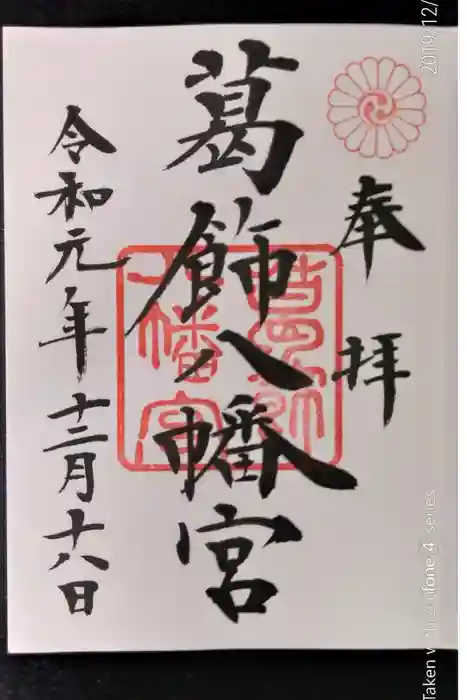 奉拝
葛飾八幡宮
令和元年十二月十八日
葛飾
八幡宮
2019/12/
Taken with zenfone 4 series